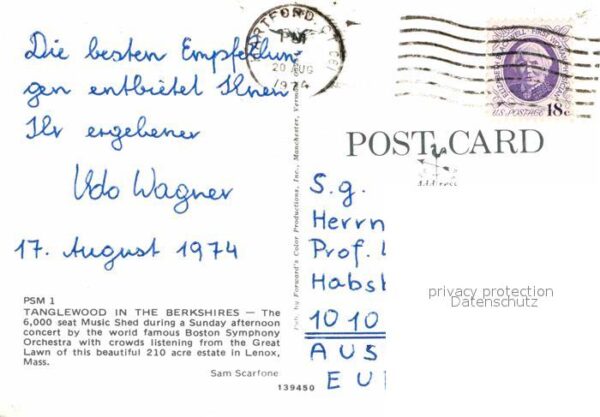 Die besten Empfehlun-
gen entbietet Ihnen
Ihr ergebener
Udo Wagner
17. August 1974
PSM 1
TANGLEWOOD IN THE BERKSHIRES — The
6,000 seat Music Shed during a Sunday afternoon
concert by the world famous Boston Symphony
Orchestra with crowds listening from the Great
Lawn of this beautiful 210 acre estate in Lenox,
Mass.
Sam Scarfone
139450
Pub. by Forward's Color Productions, Inc., Manchester, Vermont
HARTFORD
PM
20 AUG
1974
U.S. POSTAGE 18c
POST CARD
Address
S.g.
Herrn
Prof.
Habsb
1010
AUS
EU
privacy protection
Datenschutz